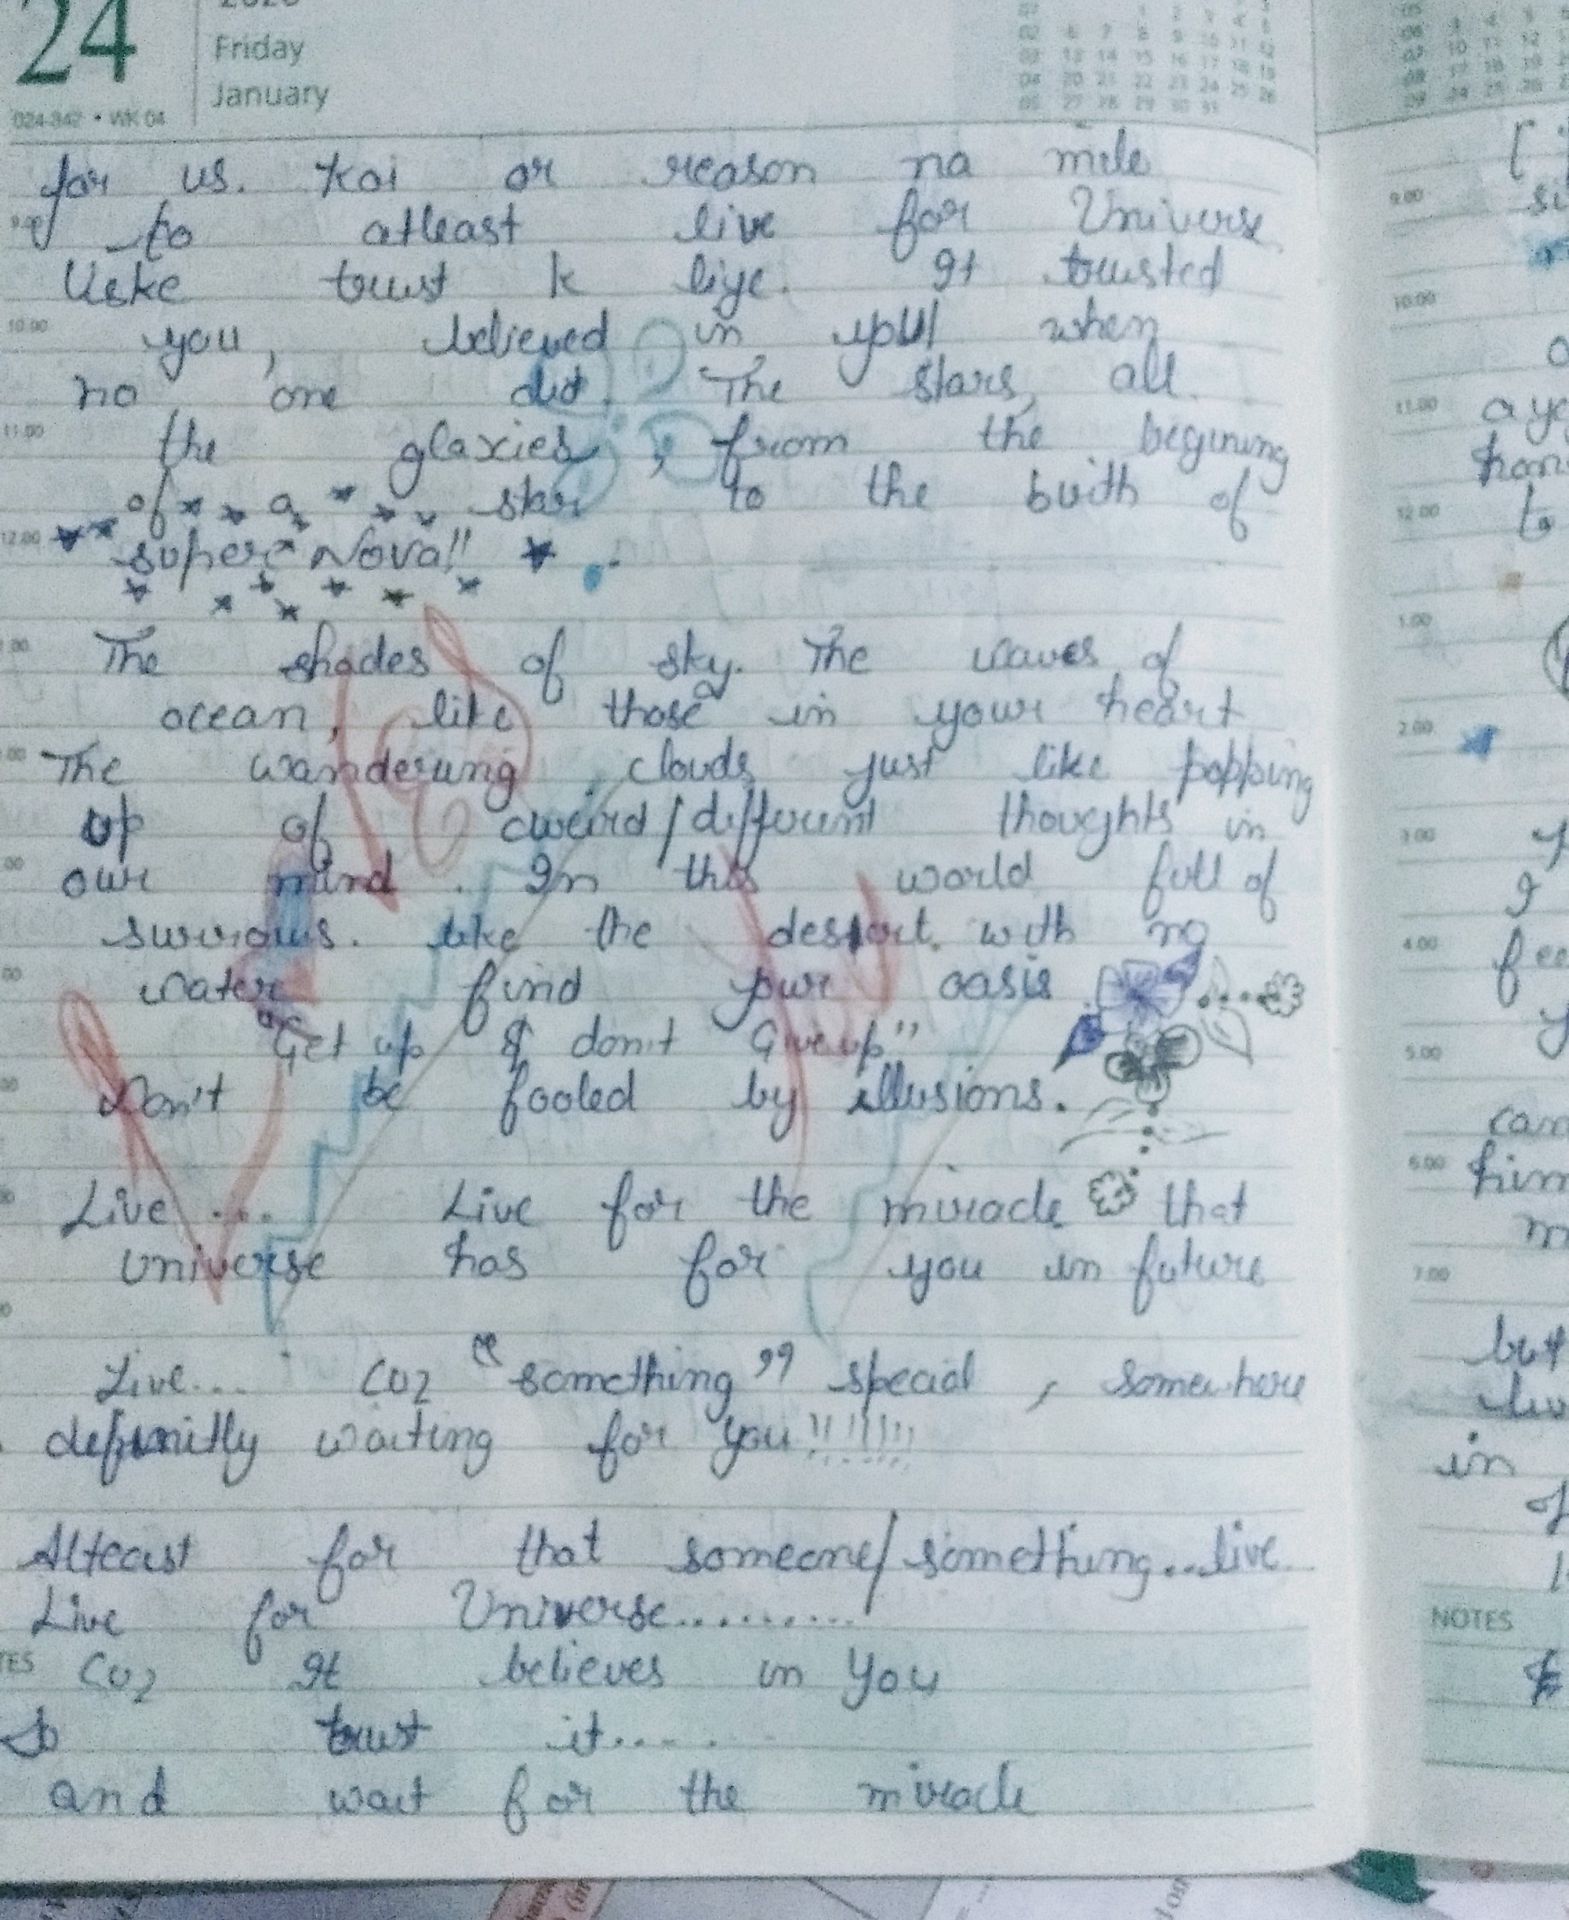 24
Friday
January
024-342 • WK 04
for us. Koi or reason na mile
to atleast live for Universe
Uske trust k liye. It trusted
you, believed in you when
no one did. The stars, all
the glaxies, from the begining
of a star to the birth of
super Nova!!
The shades of sky. The waves of
ocean, like those in your heart
The wandering clouds just like popping
up of weird/different thoughts in
our mind. In this world full of
like the desert. with no
water find your oasis
"Get up & don't Give up"
Don't be fooled by illusions.
Live ... Live for the miracle that
Universe has for you in future
Live... CO2 "something" special, somewhere
waiting for you!!!!!!!
Alteast for that someone/something...live
Live for Universe..........
CO2 It believes in You
So trust it.....
and wait for the miracle
9.00
10.00
11.00
12.00
1.00
2.00
3.00
4.00
5.00
6.00
7.00
NOTES
him
but
in